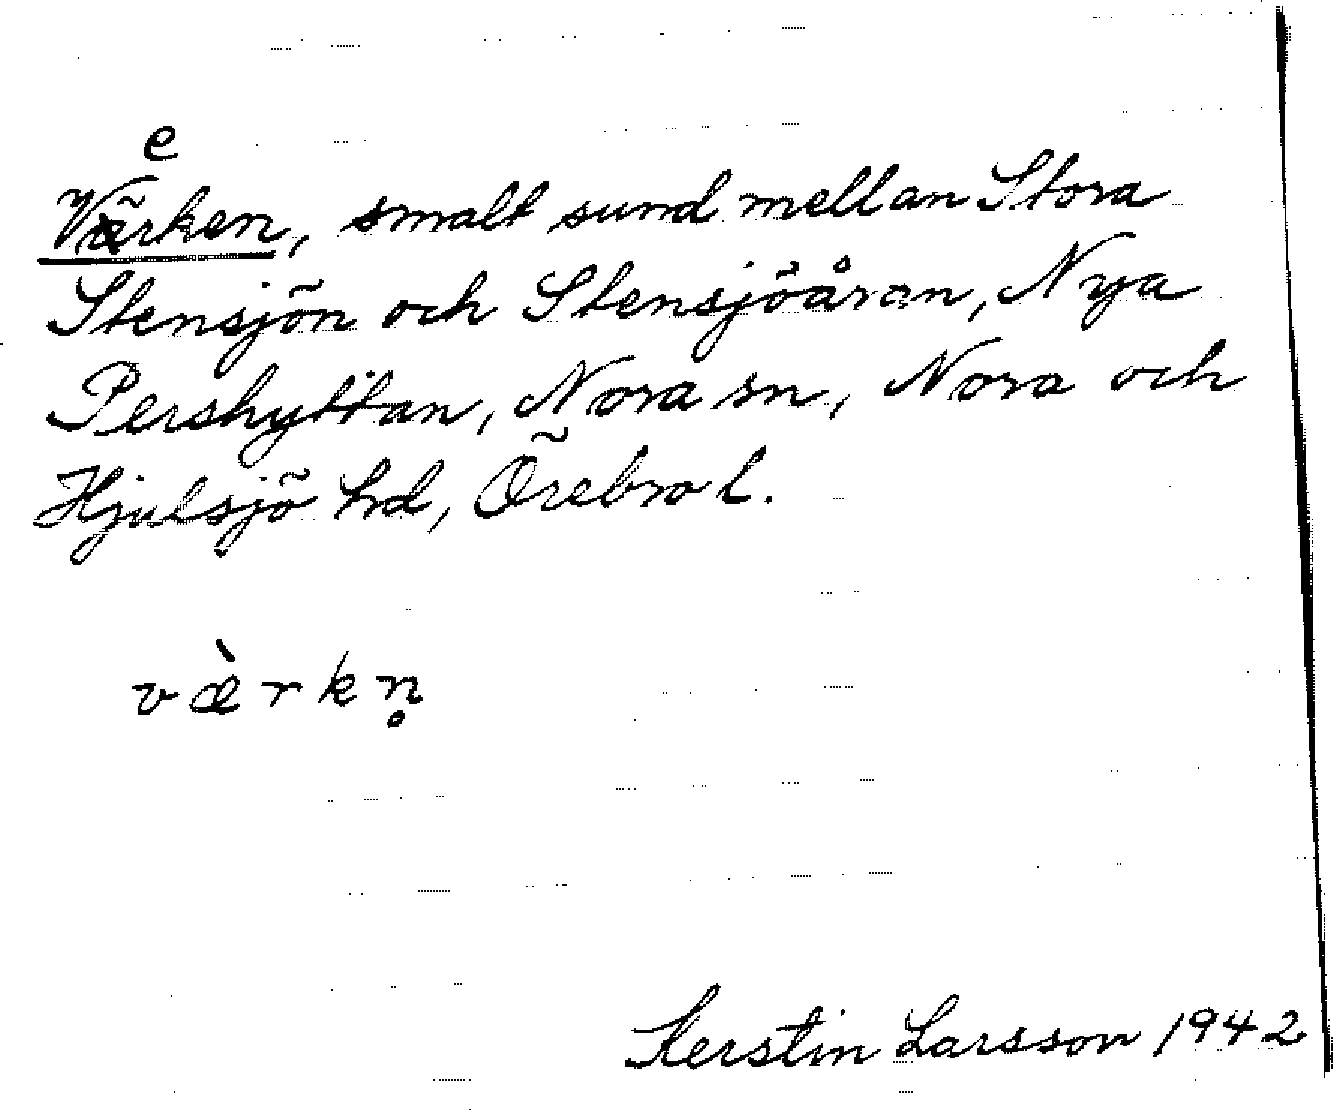 e
Värken, smalt sund mellan Stora
Stensjön och Stensjöåran, Nya
Pershyttan, Nora sn, Nora och
Hjulsjö hd, Örebro l.
væ̀rkn̥
Kerstin Larsson 1942